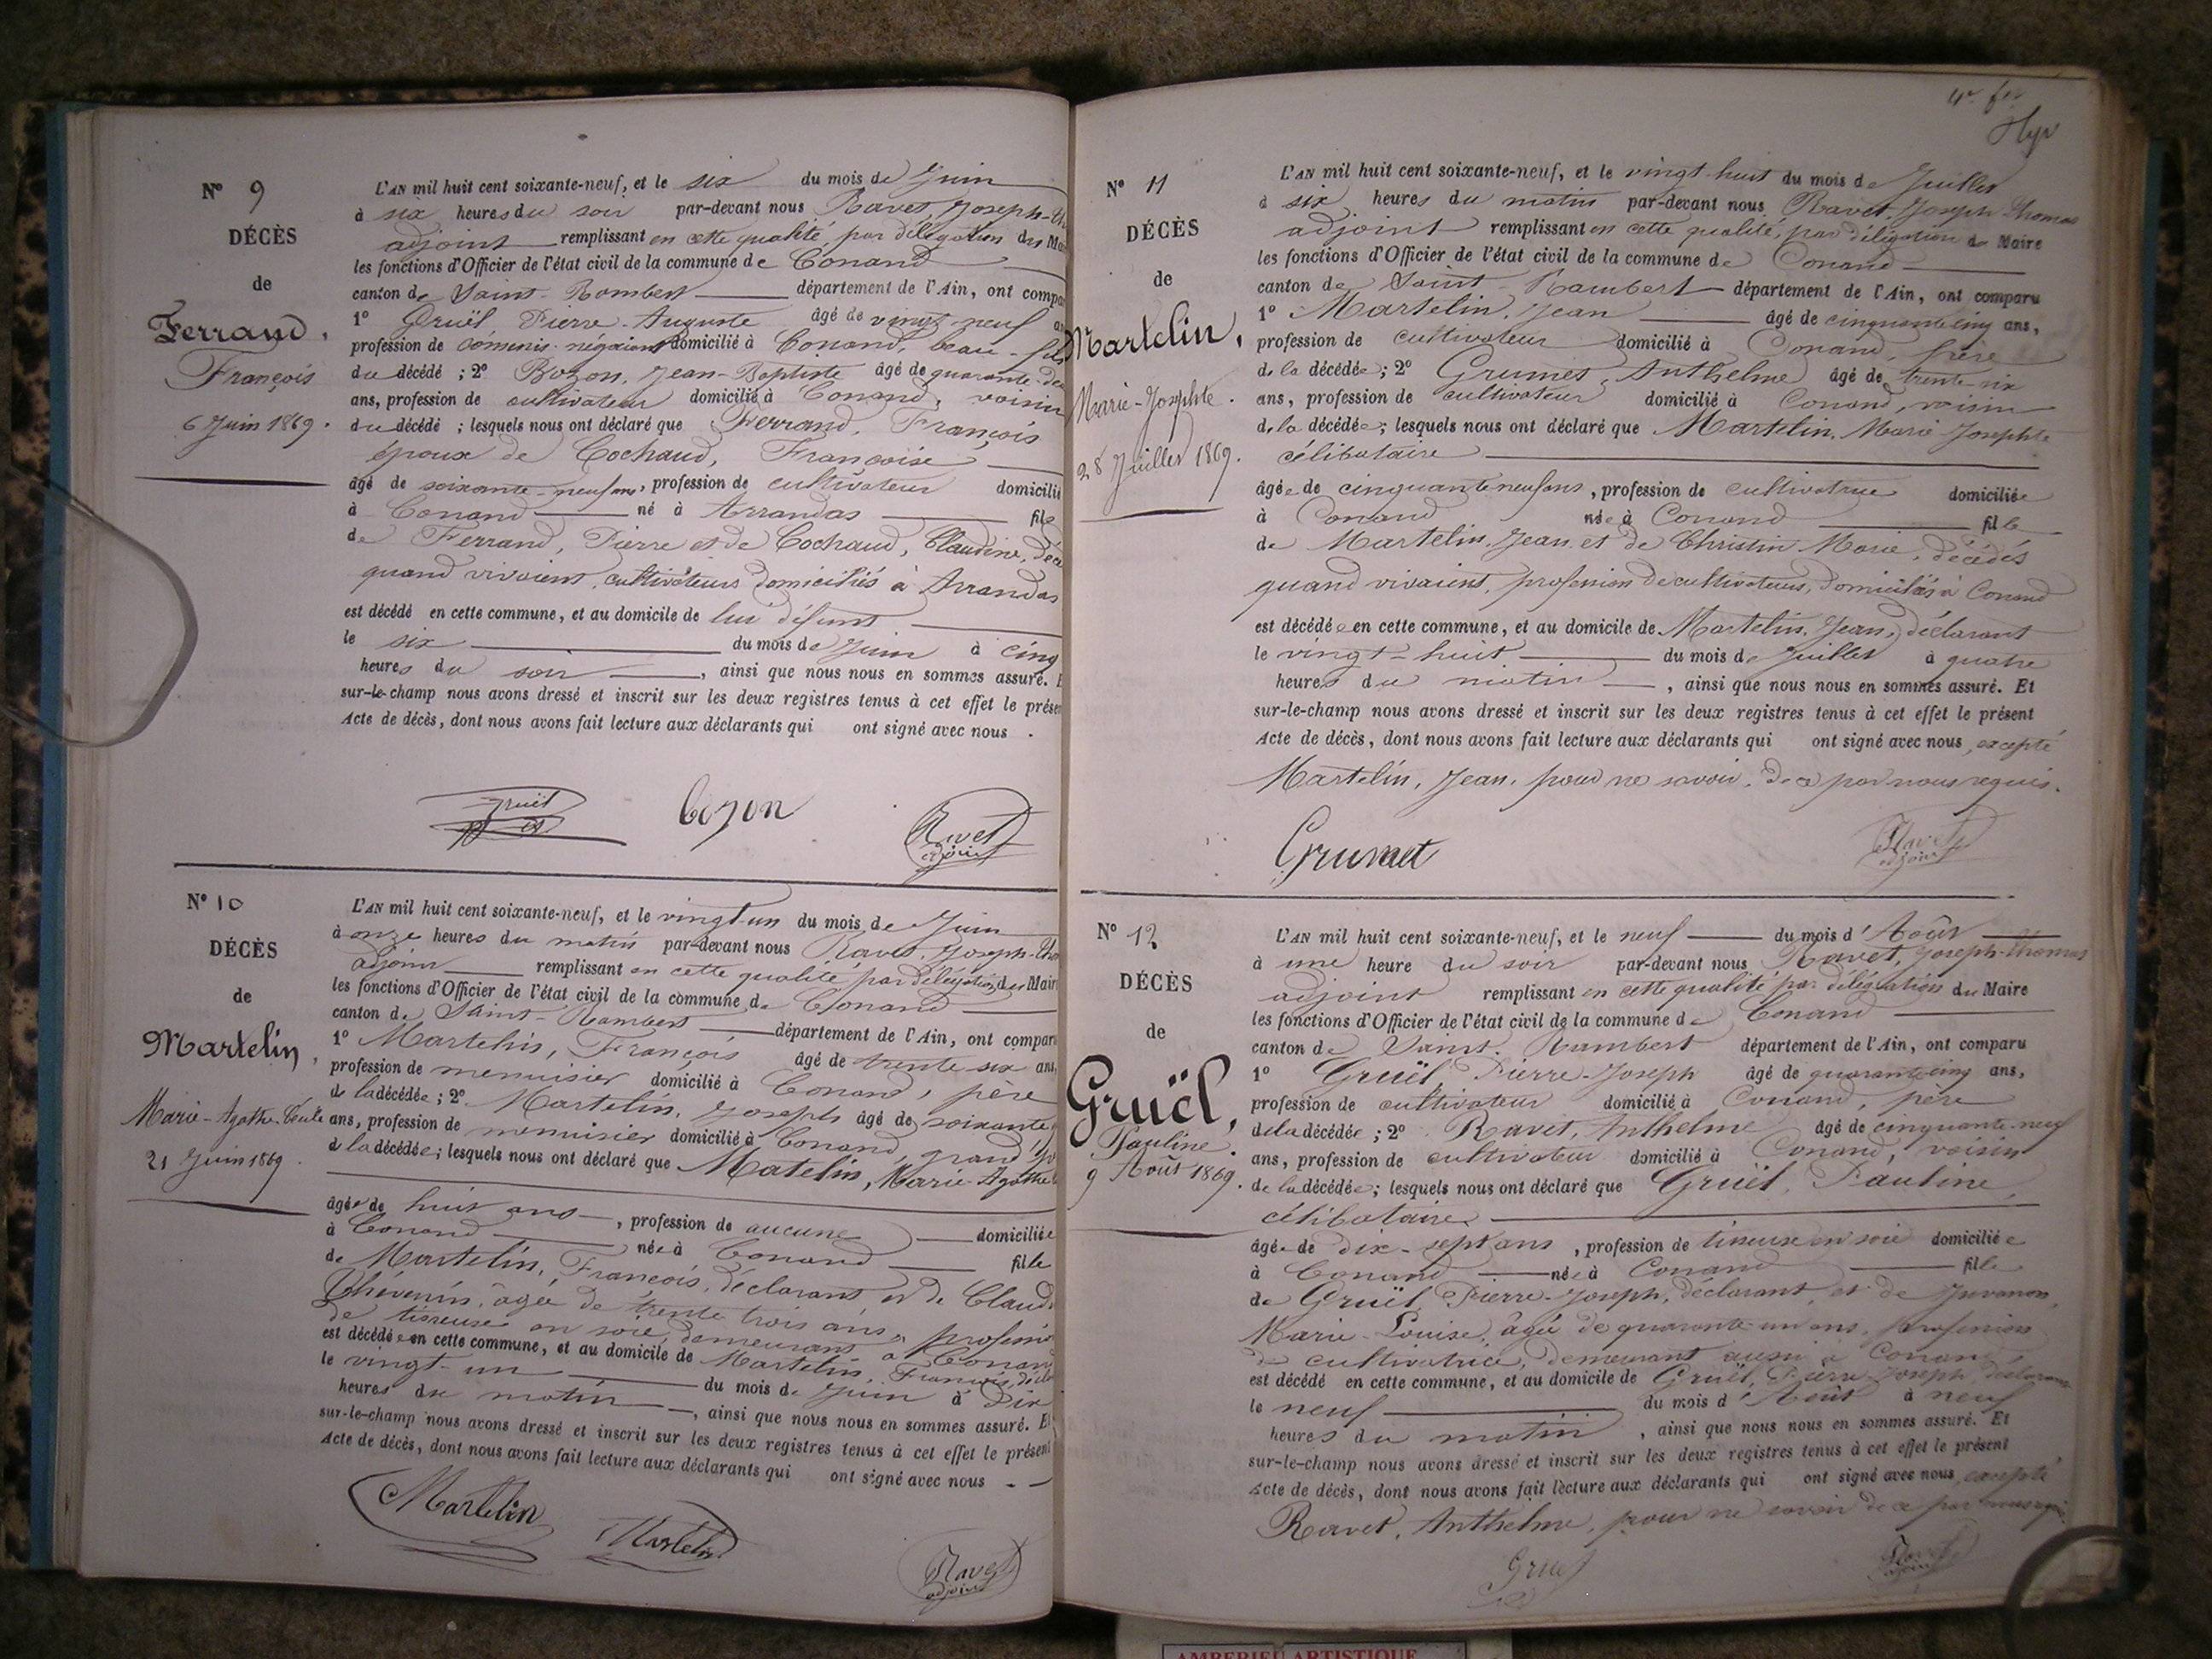 N° 9
DÉCÈS
de
Ferrand,
François
6 Juin 1869.
L'AN mil huit cent soixante-neuf, et le six du mois de Juin
à six heures du soir par-devant nous Ravet, Joseph-
adjoint remplissant en cette qualité, par délégation du
les fonctions d'Officier de l'état civil de la commune de Conand
canton de Saint-Rambert département de l'Ain, ont
1° Gruël, Pierre-Auguste âgé de vingt-neuf
profession de commis-négociant domicilié à Conand, beau-fils
du décédé ; 2° Bozon, Jean-Baptiste âgé de quarante-
ans, profession de cultivateur domicilié à Conand, voisin
du décédé ; lesquels nous ont déclaré que Ferrand, François
époux de Cochaud, Françoise
âgé de soixante-neuf ans, profession de cultivateur domicilié
à Conand né à Arrandas fils
de Ferrand, Pierre et de Cochaud, Claudine,
quand vivaient, cultivateurs domiciliés à Arrandas
est décédé en cette commune, et au domicile de lui défunt
le six du mois de Juin à cinq
heures du soir, ainsi que nous nous en sommes assuré.
sur-le-champ nous avons dressé et inscrit sur les deux registres tenus à cet effet le
Acte de décès, dont nous avons fait lecture aux déclarants qui ont signé avec nous.
Gruël bozon Ravet
adjoint
N° 10
DÉCÈS
de
Martelin,
Marie-Agathe-
21 Juin 1869.
L'AN mil huit cent soixante-neuf, et le vingt-un du mois de Juin
à onze heures du matin par-devant nous Ravet, Joseph-
adjoint remplissant en cette qualité par délégation du
les fonctions d'Officier de l'état civil de la commune de Conand
canton de Saint-Rambert département de l'Ain, ont
1° Martelin, François âgé de trente six ans,
profession de menuisier domicilié à Conand, père
de la décédée ; 2° Martelin, Joseph âgé de soixante
ans, profession de menuisier domicilié à Conand, grand
de la décédée ; lesquels nous ont déclaré que Matelin, Marie-Agathe
âgée de huit ans, profession de aucune domiciliée
à Conand née à Conand fille
de Martelin, François, déclarant et de
Thévenin, âgée de trente trois ans,
de tisseuse en soie, demeurant à
est décédée en cette commune, et au domicile de Martelin, François,
le vingt-un du mois de Juin à dix
heures du matin, ainsi que nous nous en sommes assuré. Et
sur-le-champ nous avons dressé et inscrit sur les deux registres tenus à cet effet le présent
Acte de décès, dont nous avons fait lecture aux déclarants qui ont signé avec nous.
Martelin Martelin Ravet
adjoint
N° 11
DÉCÈS
de
Martelin,
Marie-Josephte.
28 Juillet 1869.
L'AN mil huit cent soixante-neuf, et le vingt-huit du mois de Juillet
à six heures du matin par-devant nous Ravet, Joseph-Thomas
adjoint remplissant en cette qualité, par délégation du Maire
les fonctions d'Officier de l'état civil de la commune de Conand
canton de Saint-Rambert département de l'Ain, ont comparu
1° Martelin, Jean âgé de cinquante cinq ans,
profession de cultivateur domicilié à Conand, frère
de la décédée ; 2° Grumet, Anthelme âgé de trente-six
ans, profession de cultivateur domicilié à Conand, voisin
de la décédée ; lesquels nous ont déclaré que Martelin, Marie Josephte
célibataire
âgée de cinquante neuf ans, profession de cultivatrice domiciliée
à Conand née à Conand fille
de Martelin, Jean et de Christin Marie, décédés
quand vivaient, profession de cultivateurs, domiciliés à Conand
est décédée en cette commune, et au domicile de Martelin, Jean, déclarant
le vingt-huit du mois de Juillet à quatre
heures du matin, ainsi que nous nous en sommes assuré. Et
sur-le-champ nous avons dressé et inscrit sur les deux registres tenus à cet effet le présent
Acte de décès, dont nous avons fait lecture aux déclarants qui ont signé avec nous, excepté
Martelin, Jean, pour ne savoir, de ce par nous requis.
Grumet Ravet
adjoint
N° 12
DÉCÈS
de
Gruël,
Pauline.
9 Août 1869.
L'AN mil huit cent soixante-neuf, et le neuf du mois d'Août
à une heure du soir par-devant nous Ravet, Joseph-Thomas
adjoint remplissant en cette qualité par délégation du Maire
les fonctions d'Officier de l'état civil de la commune de Conand
canton de Saint-Rambert département de l'Ain, ont comparu
1° Gruël, Pierre-Joseph âgé de quarante cinq ans,
profession de cultivateur domicilié à Conand, père
de la décédée ; 2° Ravet, Anthelme âgé de cinquante-neuf
ans, profession de cultivateur domicilié à Conand, voisin
de la décédée ; lesquels nous ont déclaré que Gruël, Pauline,
célibataire
âgée de dix-sept ans, profession de tisseuse en soie domiciliée
à Conand née à Conand fille
de Gruël, Pierre-Joseph, déclarant, et de Juvanon,
Marie-Louise, âgée de quarante-un ans, profession
de cultivatrice, demeurant aussi à Conand,
est décédé en cette commune, et au domicile de Gruël, Pierre-Joseph, déclarant
le neuf du mois d'Août à neuf
heures du matin, ainsi que nous nous en sommes assuré. Et
sur-le-champ nous avons dressé et inscrit sur les deux registres tenus à cet effet le présent
Acte de décès, dont nous avons fait lecture aux déclarants qui ont signé avec nous excepté
Ravet, Anthelme, pour ne savoir de ce par nous
Gruël Ravet
adjoint
AMBERIEU ARTISTIQUE